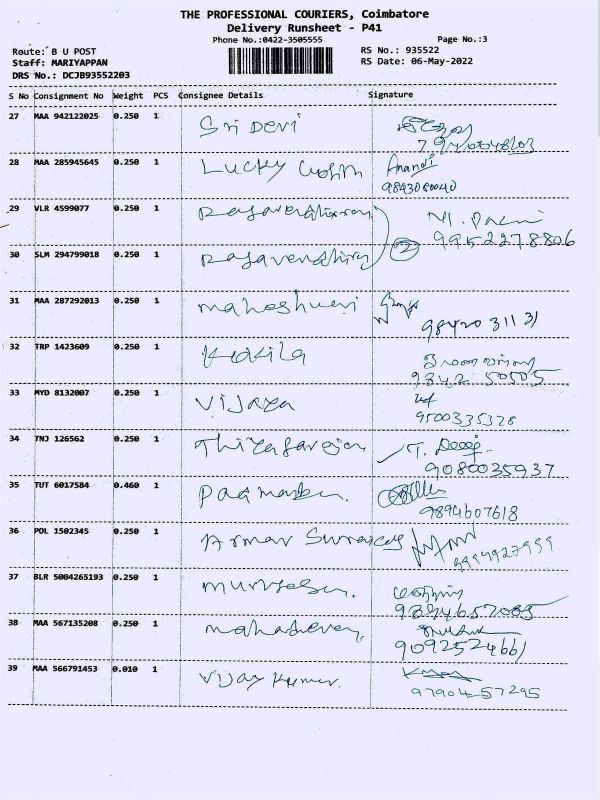 THE PROFESSIONAL COURIERS, Coimbatore
Delivery Runsheet - P41
Phone No.:0422-3505555
Page No.:3
Route: B U POST
RS No.: 935522
Staff: MARIYAPPAN
RS Date: 06-May-2022
DRS No.: DCJB93552203
S No Consignment No Weight PCS Consignee Details Signature
27 MAA 942122025 0.250 1 Sri Devi
28 MAA 285945645 0.250 1 Lucky Anandi
29 VLR 4599077 0.250 1
9952278806
30 SLM 294799018 0.250 1 2
31 MAA 287292013 0.250 1 maheshwari
98420 31131
32 TRP 1423609 0.250 1 Kokila
9342 50505
33 MYD 8132007 0.250 1 Vijaya
9500335328
34 TNJ 126562 0.250 1 Thiyagarajan T.
9080035937
35 TUT 6017584 0.460 1
9894607618
36 POL 1502345 0.250 1
9994927959
37 BLR 5004265193 0.250 1 murugesan.
9894657085
38 MAA 567135208 0.250 1 mahadevan,
9092524661
39 MAA 566791453 0.010 1 Vijay Kumar.
9790457295